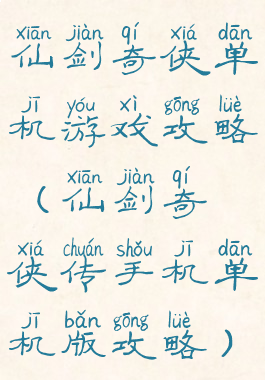 xiān jiàn qí xiá dān
仙剑奇侠单
jī yóu xì gōng lüè
机游戏攻略
xiān jiàn qí
（仙剑奇
xiá chuán shǒu jī dān
侠传手机单
jī bǎn gōng lüè
机版攻略）